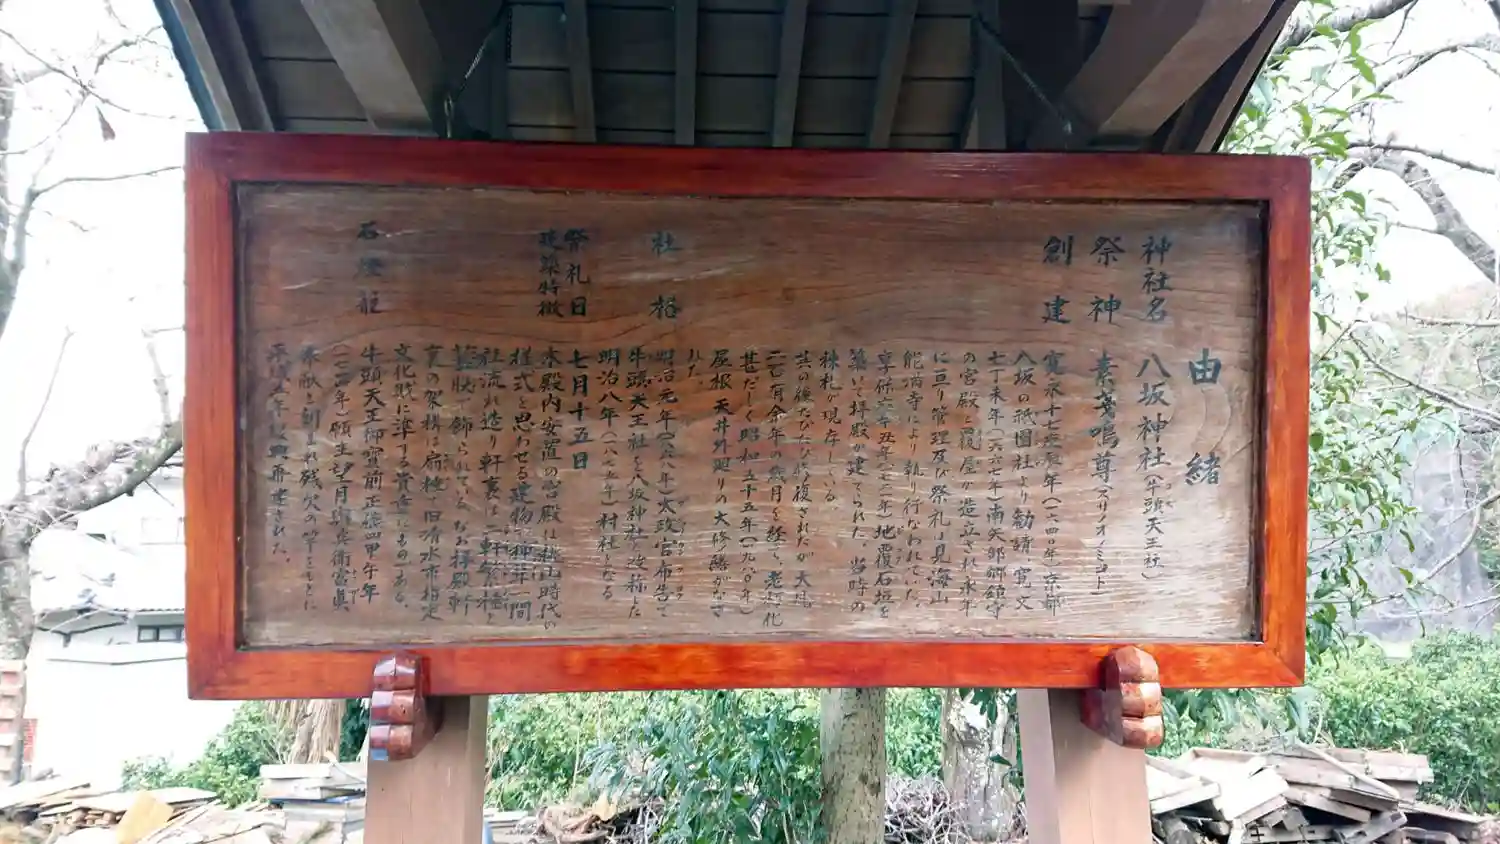 由緒
神社名 八坂神社(牛頭天王社)
祭神 素戔嗚尊 スサノオノミコト
創建 寛永十七庚辰年(一六四〇年)京都
八坂の祇園社より勧請、寛文
七丁未年(一六六七年)南矢部郷鎮守
の宮殿と覆屋が造立され永年
に亘り管理及び祭礼は見海山
能満寺により執り行なわれていた。
享保六辛丑年(一七二一年)地覆石垣を
築いて拝殿が建てられた。当時の
棟札が現存している。
其の後たびたび修復されたが大屋
二百有余年の歳月を経て、老朽化
甚だしく昭和五十五年(一九八〇年)
屋根天井外廻りの大修繕がなさ
れた。
社格 明治元年(一八六八年)太政官布告で
牛頭天王社を八坂神社と改称した
明治八年(一八七五年)村社となる
祭礼日 七月十五日
建築特徴 本殿内安置の宮殿は桃山時代の
様式と思わせる建物で神井一間
社流れ造り軒裏は二軒繁垂木
裏の架構は扇棰で旧清水市指定
文化財に準ずる貴重なものである。
石燈籠 牛頭天王御宝前正徳四甲午年
(一七一四年)願主望月与兵衛當眞
奉献と刻まれ残欠の竿をもとに
平成五年復興再建された。